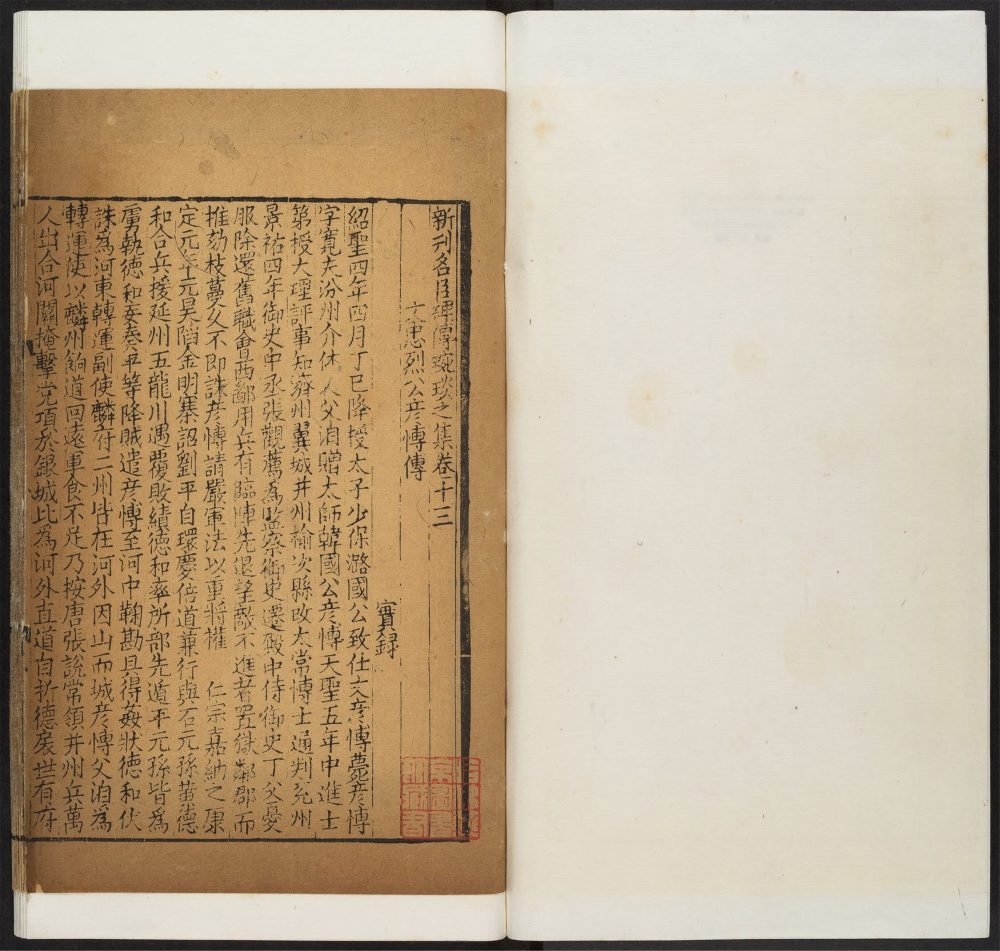 新刊名臣碑傳琬琰之集卷十三
文忠烈公彦愽傳
實録
紹聖四年四月丁巳降授太子少保潞國公致仕文彦愽薨彦愽
字寛夫汾州介休人父洎贈太師韓國公彦愽天聖五年中進士
第授大理評事知絳州翼城并州榆次縣改太常愽士通判兖州
景祐四年御史中丞張觀薦為監察御史遷殿中侍御史丁父憂
服除還舊職會西鄙用兵有臨陣先退望敵不進者置獄鄰郡而
推劾枝蔓久不即誅彦愽請嚴軍法以重將權 仁宗嘉納之康
定元年元昊陷金明寨詔劉平自環慶倍道兼行與石元孫黄德
和合兵援延州五龍川遇覆敗績德和率所部先遁平元孫皆為
虜執德和妄奏平等降賊遣彦愽至河中鞠勘具得姦狀德和伏
誅為河東轉運副使麟府二州皆在河外因山而城彦愽父洎為
轉運使以麟州餉道回遠軍食不足乃按唐張説常領并州兵萬
人出合河關掩擊党項於銀城比為河外直道自折德扆世有府